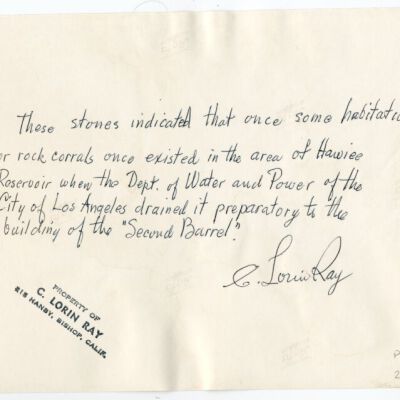 These stones indicated that once some habitatio
or rock corrals once existed in the area of Hawiee
Reservoir when the Dept. of Water and Power of the
City of Los Angeles drained it preparatory to the
building of the "Second Barrel".
C. Lorin Ray
PROPERTY OF
C. LORIN RAY
BISHOP, CALIF.